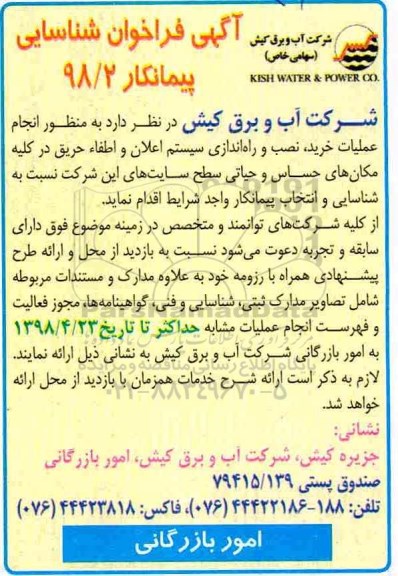 آگهی فراخوان شناسایی
پیمانکار ۹۸/۲
شرکت آب و برق کیش
(سهامی خاص)
KISH WATER & POWER CO.
شــرکت آب و برق کیش در نظر دارد به منظور انجام
عملیات خرید، نصب و راه‌اندازی سیستم اعلان و اطفاء حریق در کلیه
مکان‌های حساس و حیاتی سطح سایت‌های این شرکت نسبت به
شناسایی و انتخاب پیمانکار واجد شرایط اقدام نماید.
از کلیه شرکت‌های توانمند و متخصص در زمینه موضوع فوق دارای
سابقه و تجربه دعوت می‌شود نسبت به بازدید از محل و ارائه طرح
پیشنهادی همراه با رزومه خود به علاوه مدارک و مستندات مربوطه
شامل تصاویر مدارک ثبتی، شناسایی و فنی، گواهینامه‌ها، مجوز فعالیت
و فهرست انجام عملیات مشابه حداکثر تا تاریخ ۱۳۹۸/۴/۲۳
به امور بازرگانی شرکت آب و برق کیش به نشانی ذیل ارائه نمایند.
لازم به ذکر است ارائه شرح خدمات همزمان با بازدید از محل ارائه
خواهد شد.
نشانی:
جزیره کیش، شرکت آب و برق کیش، امور بازرگانی
صندوق پستی ۷۹۴۱۵/۱۳۹
تلفن: ۱۸۸-۴۴۴۲۲۱۸۶ (۰۷۶)، فاکس: ۴۴۴۲۳۸۱۸ (۰۷۶)
امور بازرگانی
ParsNamadData
پایگاه اطلاع رسانی مناقصه و مزایده
۰۲۱-۸۸۳۴۹۶۷۰-۵